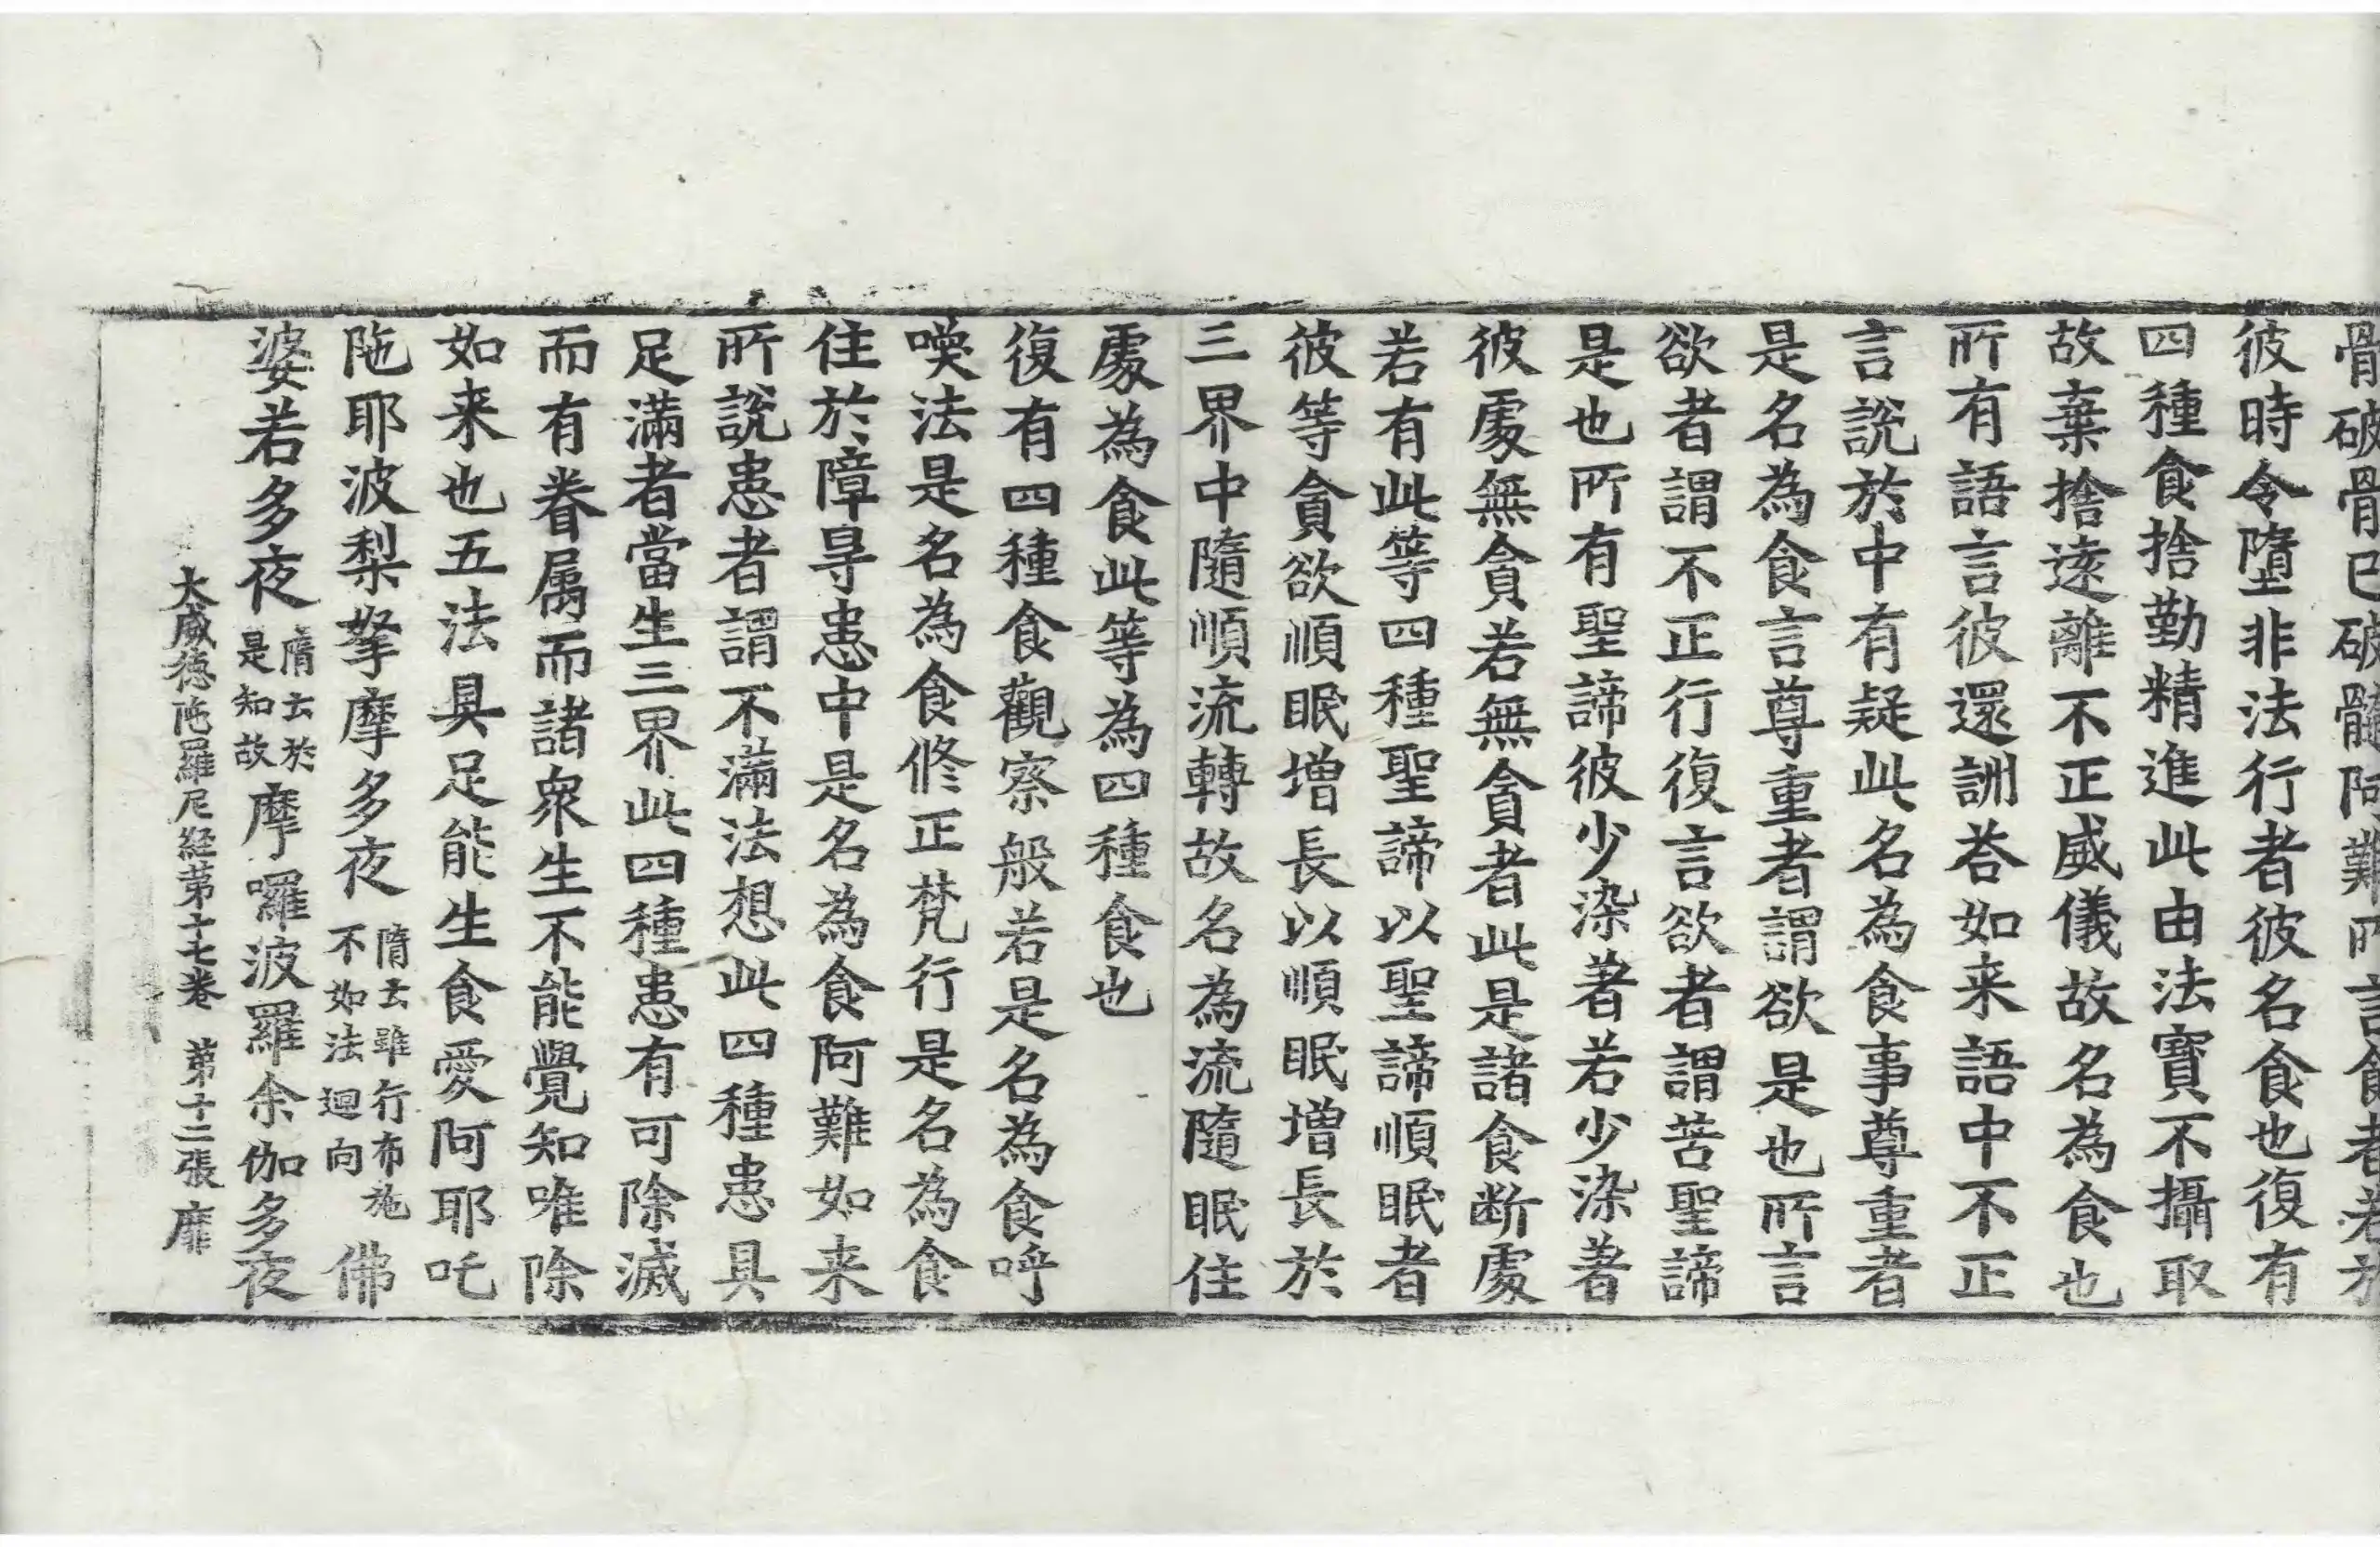 骨破骨已破髓阿難所言食者若於
彼時令墮非法行者彼名食也復有
四種食捨勤精進此由法寶不攝取
故棄捨遠離不正威儀故名為食也
所有語言彼還詶荅如来語中不正
言說於中有疑此名為食事尊重者
是名為食言尊重者謂欲是也所言
欲者謂不正行復言欲者謂苦聖諦
是也所有聖諦彼少染著若少染著
彼處無貪若無貪者此是諸食断處
若有此等四種聖諦以聖諦順眠者
彼等貪欲順眠增長以順眠增長於
三界中隨順流轉故名為流隨眠住
處為食此等為四種食也
復有四種食觀察般若是名為食呼
喚法是名為食修正梵行是名為食
住於障㝵患中是名為食阿難如来
所說患者謂不滿法想此四種患具
足滿者當生三界此四種患有可除滅
而有眷属而諸衆生不能覺知唯除
如来也五法具足能生食愛阿耶吒
陁耶波梨拏摩多夜隋云雖行布施不如法迴向佛
婆若多夜隋云於是知故摩囉波羅余伽多夜
大威德陁羅尼経苐十七卷 苐十二張 靡